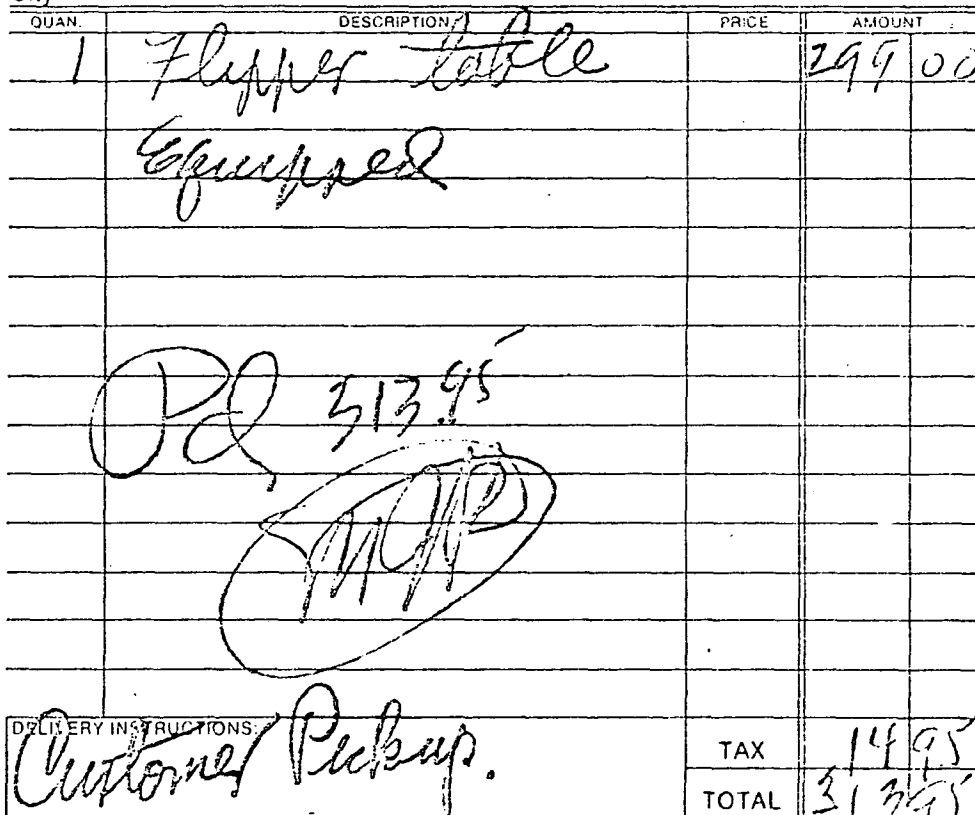 QUAN. DESCRIPTION PRICE AMOUNT
1 Flipper table 299 00
Equipped
Pd 313.95
DELIVERY INSTRUCTIONS:
Customer Pickup.
TAX 14 95
TOTAL 313 95